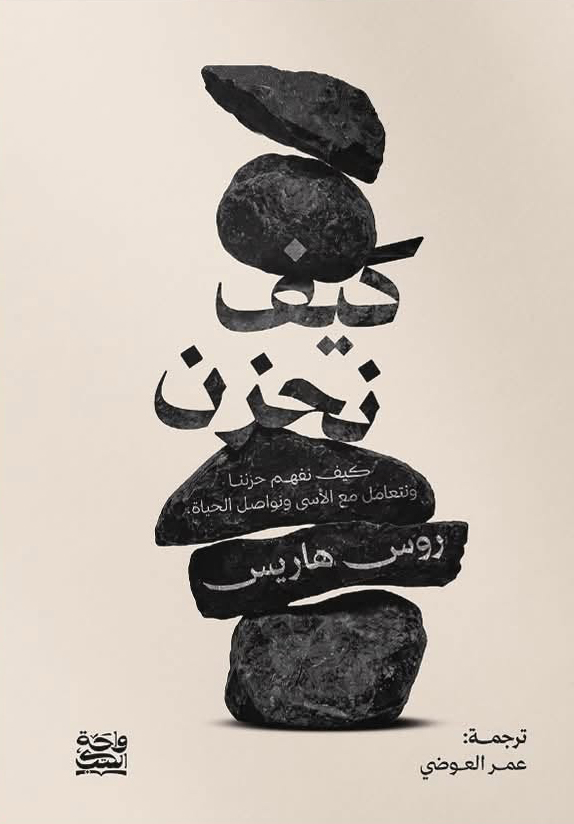 كيف
نحزن
كيف نفهم حزننا
ونتعامل مع الأسى ونواصل الحياة.
روس هاريس
ترجمة:
عمر العوضي
واحة
الكتب